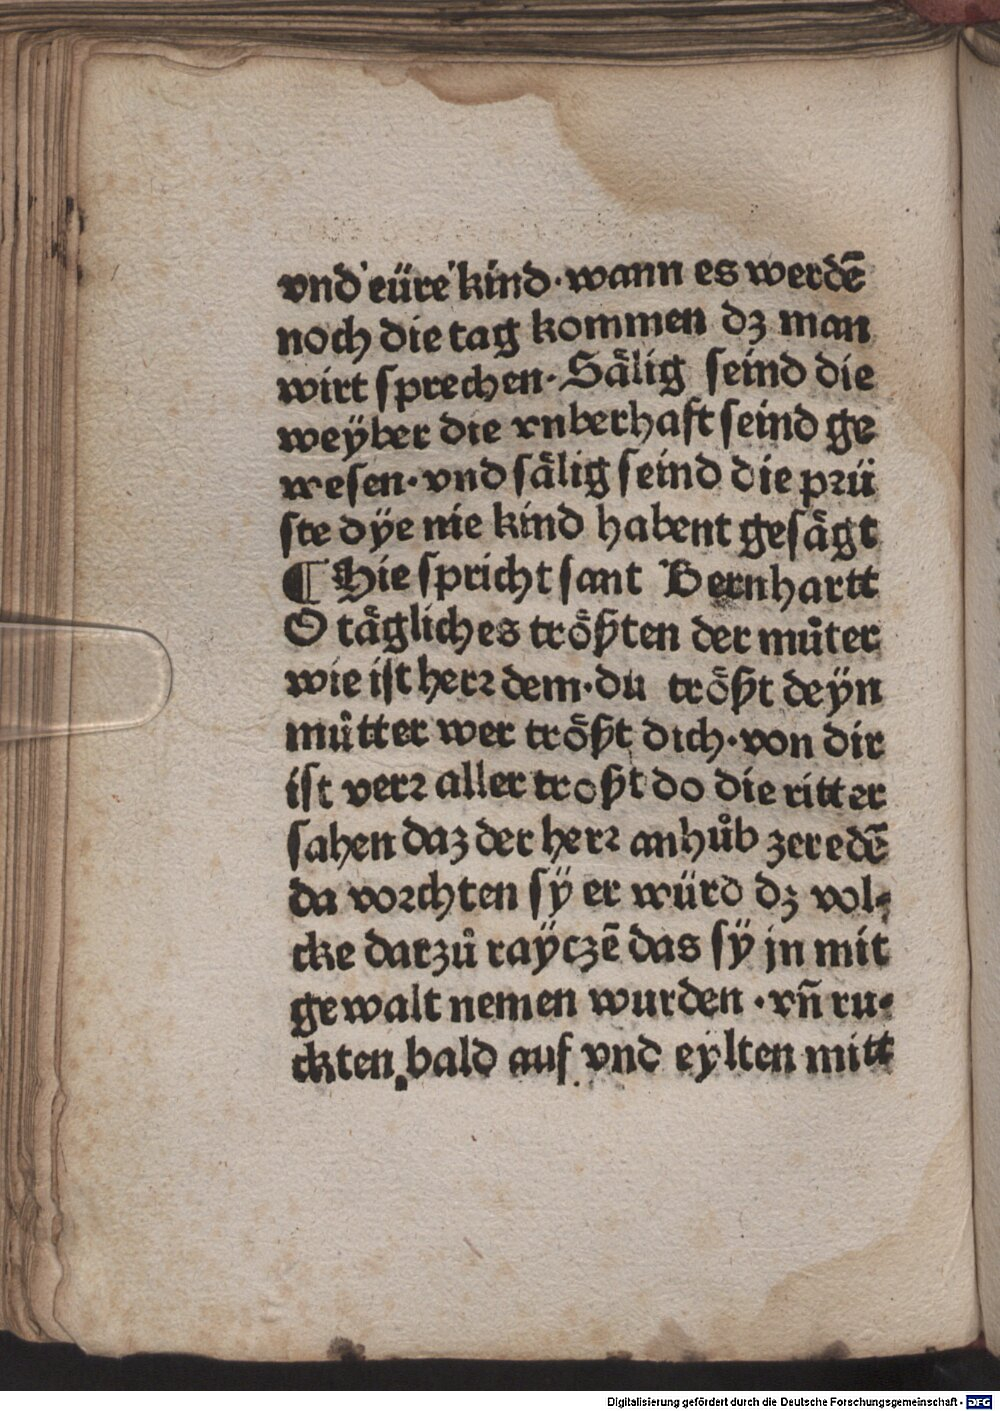 vnd eüre kind · wann es werdē
noch die tag kommen dʒ man
wirt sprechen · Sälig seind die
weÿber die vnberhaft seind ge
wesen · vnd sälig seind die prü
ste dÿe nie kind habent gesägt
¶ Hie spricht sant Bernhartt
O tägliches trößten der můter
wie ist herꝛ dem · du trößt deÿn
můtter wer trößt dich · von dir
ist verꝛ aller troßt do die ritter
sahen daz der herꝛ anhůb zeredē
da voꝛchten sÿ er würd dʒ vol⸗
cke darzů raÿczē das sÿ jn mit
gewalt nemen wurden · vn̄ ru⸗
ckten bald auf vnd eylten mitt
Digitalisierung gefördert durch die Deutsche Forschungsgemeinschaft - DFG